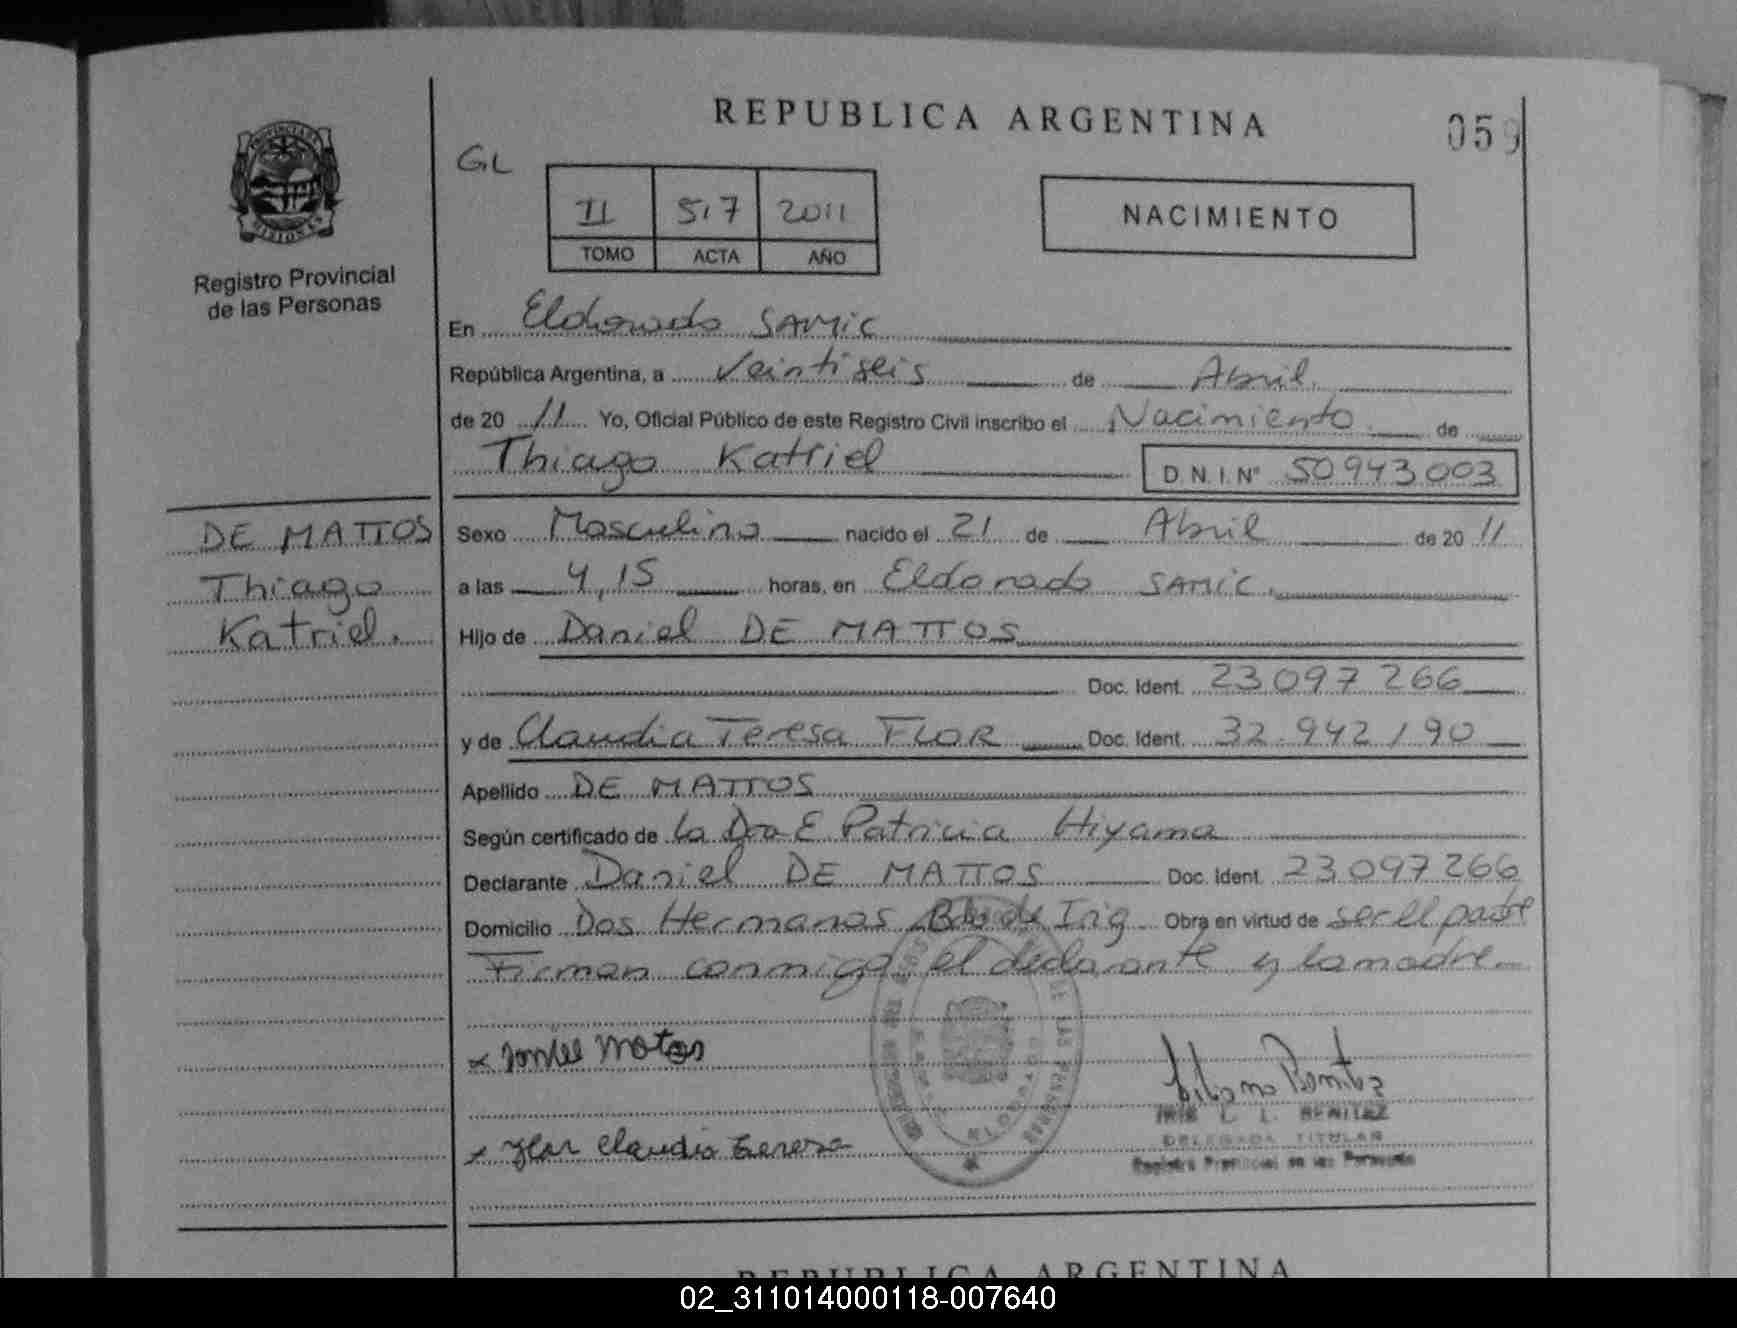 REPUBLICA ARGENTINA
059
GL
II 517 2011
TOMO ACTA AÑO
NACIMIENTO
Registro Provincial
de las Personas
En Eldorado SAMIC
República Argentina, a Veintiseis de Abril
de 20 11 Yo, Oficial Público de este Registro Civil inscribo el Nacimiento de
Thiago Katriel D.N.I.Nº 50943003
DE MATTOS
Thiago
Katriel.
Sexo Masculino nacido el 21 de Abril de 20 11
a las 4,15 horas, en Eldorado SAMIC.
Hijo de Daniel DE MATTOS
Doc. Ident. 23097266
y de Claudia Teresa FLOR Doc. Ident. 32.942190
Apellido DE MATTOS
Según certificado de la Dra E Patricia Hiyama
Declarante Daniel DE MATTOS Doc. Ident. 23097266
Domicilio Dos Hermanas Bdo de Irig Obra en virtud de ser el padre
Firman conmigo el declarante y la madre
x Motos
x Flor Claudia Teresa
Benitez
L. L. BENITEZ
DELEGADA TITULAR
Registro Provincial de las Personas
REPUBLICA ARGENTINA
02_311014000118-007640